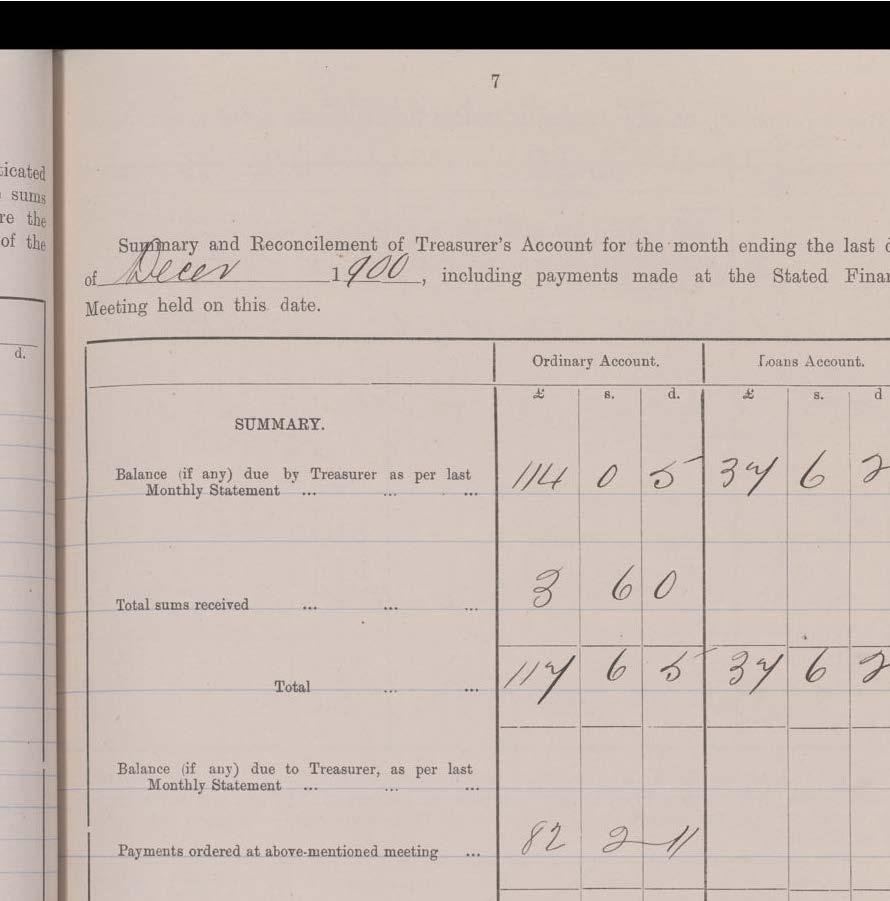 7
icated
sums
re the
of the
d.
Summary and Reconcilement of Treasurer's Account for the month ending the last d
of Decer 1900, including payments made at the Stated Finan
Meeting held on this date.
Ordinary Account. Loans Account.
£ s. d. £ s. d
SUMMARY.
Balance (if any) due by Treasurer as per last
Monthly Statement ... ... ... 114 0 5 37 6 2
Total sums received ... ... ... 3 6 0
Total ... ... 117 6 5 37 6 2
Balance (if any) due to Treasurer, as per last
Monthly Statement ... ... ...
Payments ordered at above-mentioned meeting ... 82 2 11